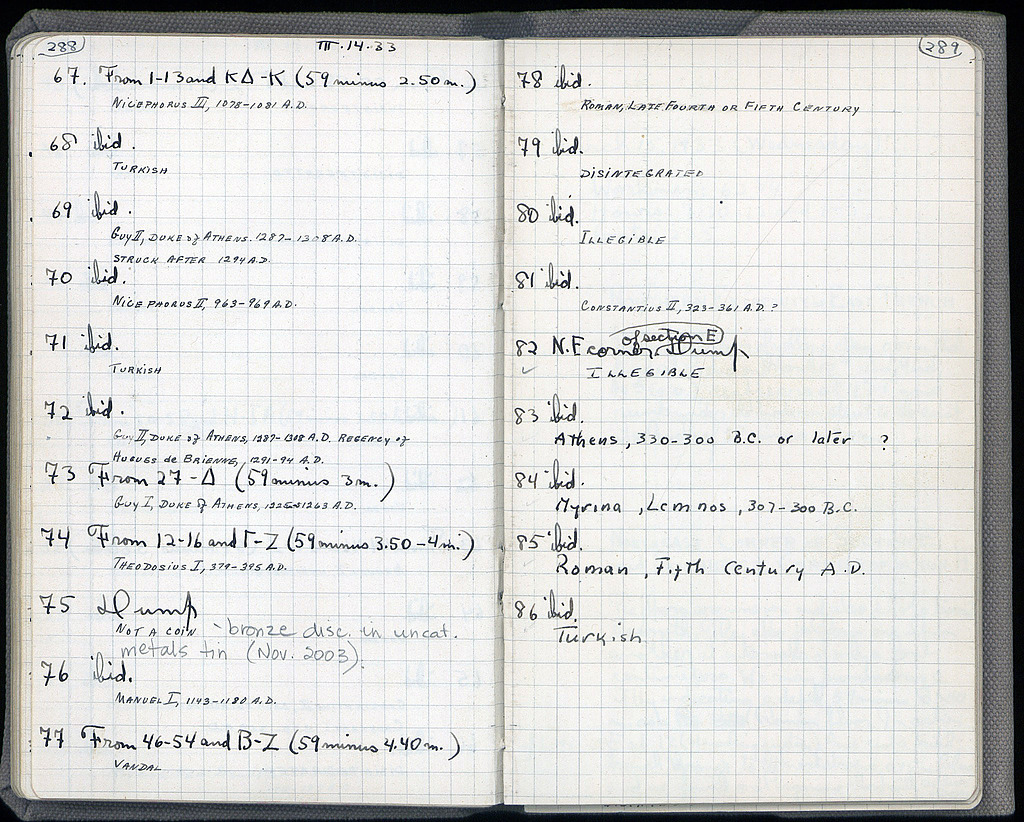 288
III.14.33
67. From 1-13 and ΚΔ-Κ (59 minus 2.50 m.)
NICEPHORUS III, 1078-1081 A.D.
68 ibid.
TURKISH
69 ibid.
GUY II, DUKE of ATHENS. 1287-1308 A.D.
STRUCK AFTER 1294 A.D.
70 ibid.
NICEPHORUS II, 963-969 A.D.
71 ibid.
TURKISH
72 ibid.
GUY II, DUKE of ATHENS, 1287-1308 A.D. REGENCY of
HUGUES de BRIENNE, 1291-94 A.D.
73 From 27-Δ (59 minus 3m.)
GUY I, DUKE of ATHENS, 1225-1263 A.D.
74 From 12-16 and Γ-Ζ (59 minus 3.50-4m.)
THEODOSIUS I, 379-395 A.D.
75 Dump
NOT A COIN - bronze disc. in uncat.
metals tin (Nov. 2003).
76 ibid.
MANUEL I, 1143-1180 A.D.
77 From 46-54 and Β-Ζ (59 minus 4.40 m.)
VANDAL
289
78 ibid.
ROMAN, LATE FOURTH OR FIFTH CENTURY
79 ibid.
DISINTEGRATED
80 ibid.
ILLEGIBLE
81 ibid.
CONSTANTIUS II, 323-361 A.D.?
of section E
82 N.E corner Dump
ILLEGIBLE
83 ibid.
Athens, 330-300 B.C. or later ?
84 ibid.
Myrina, Lemnos, 307-300 B.C.
85 ibid.
Roman, Fifth Century A.D.
86 ibid.
Turkish